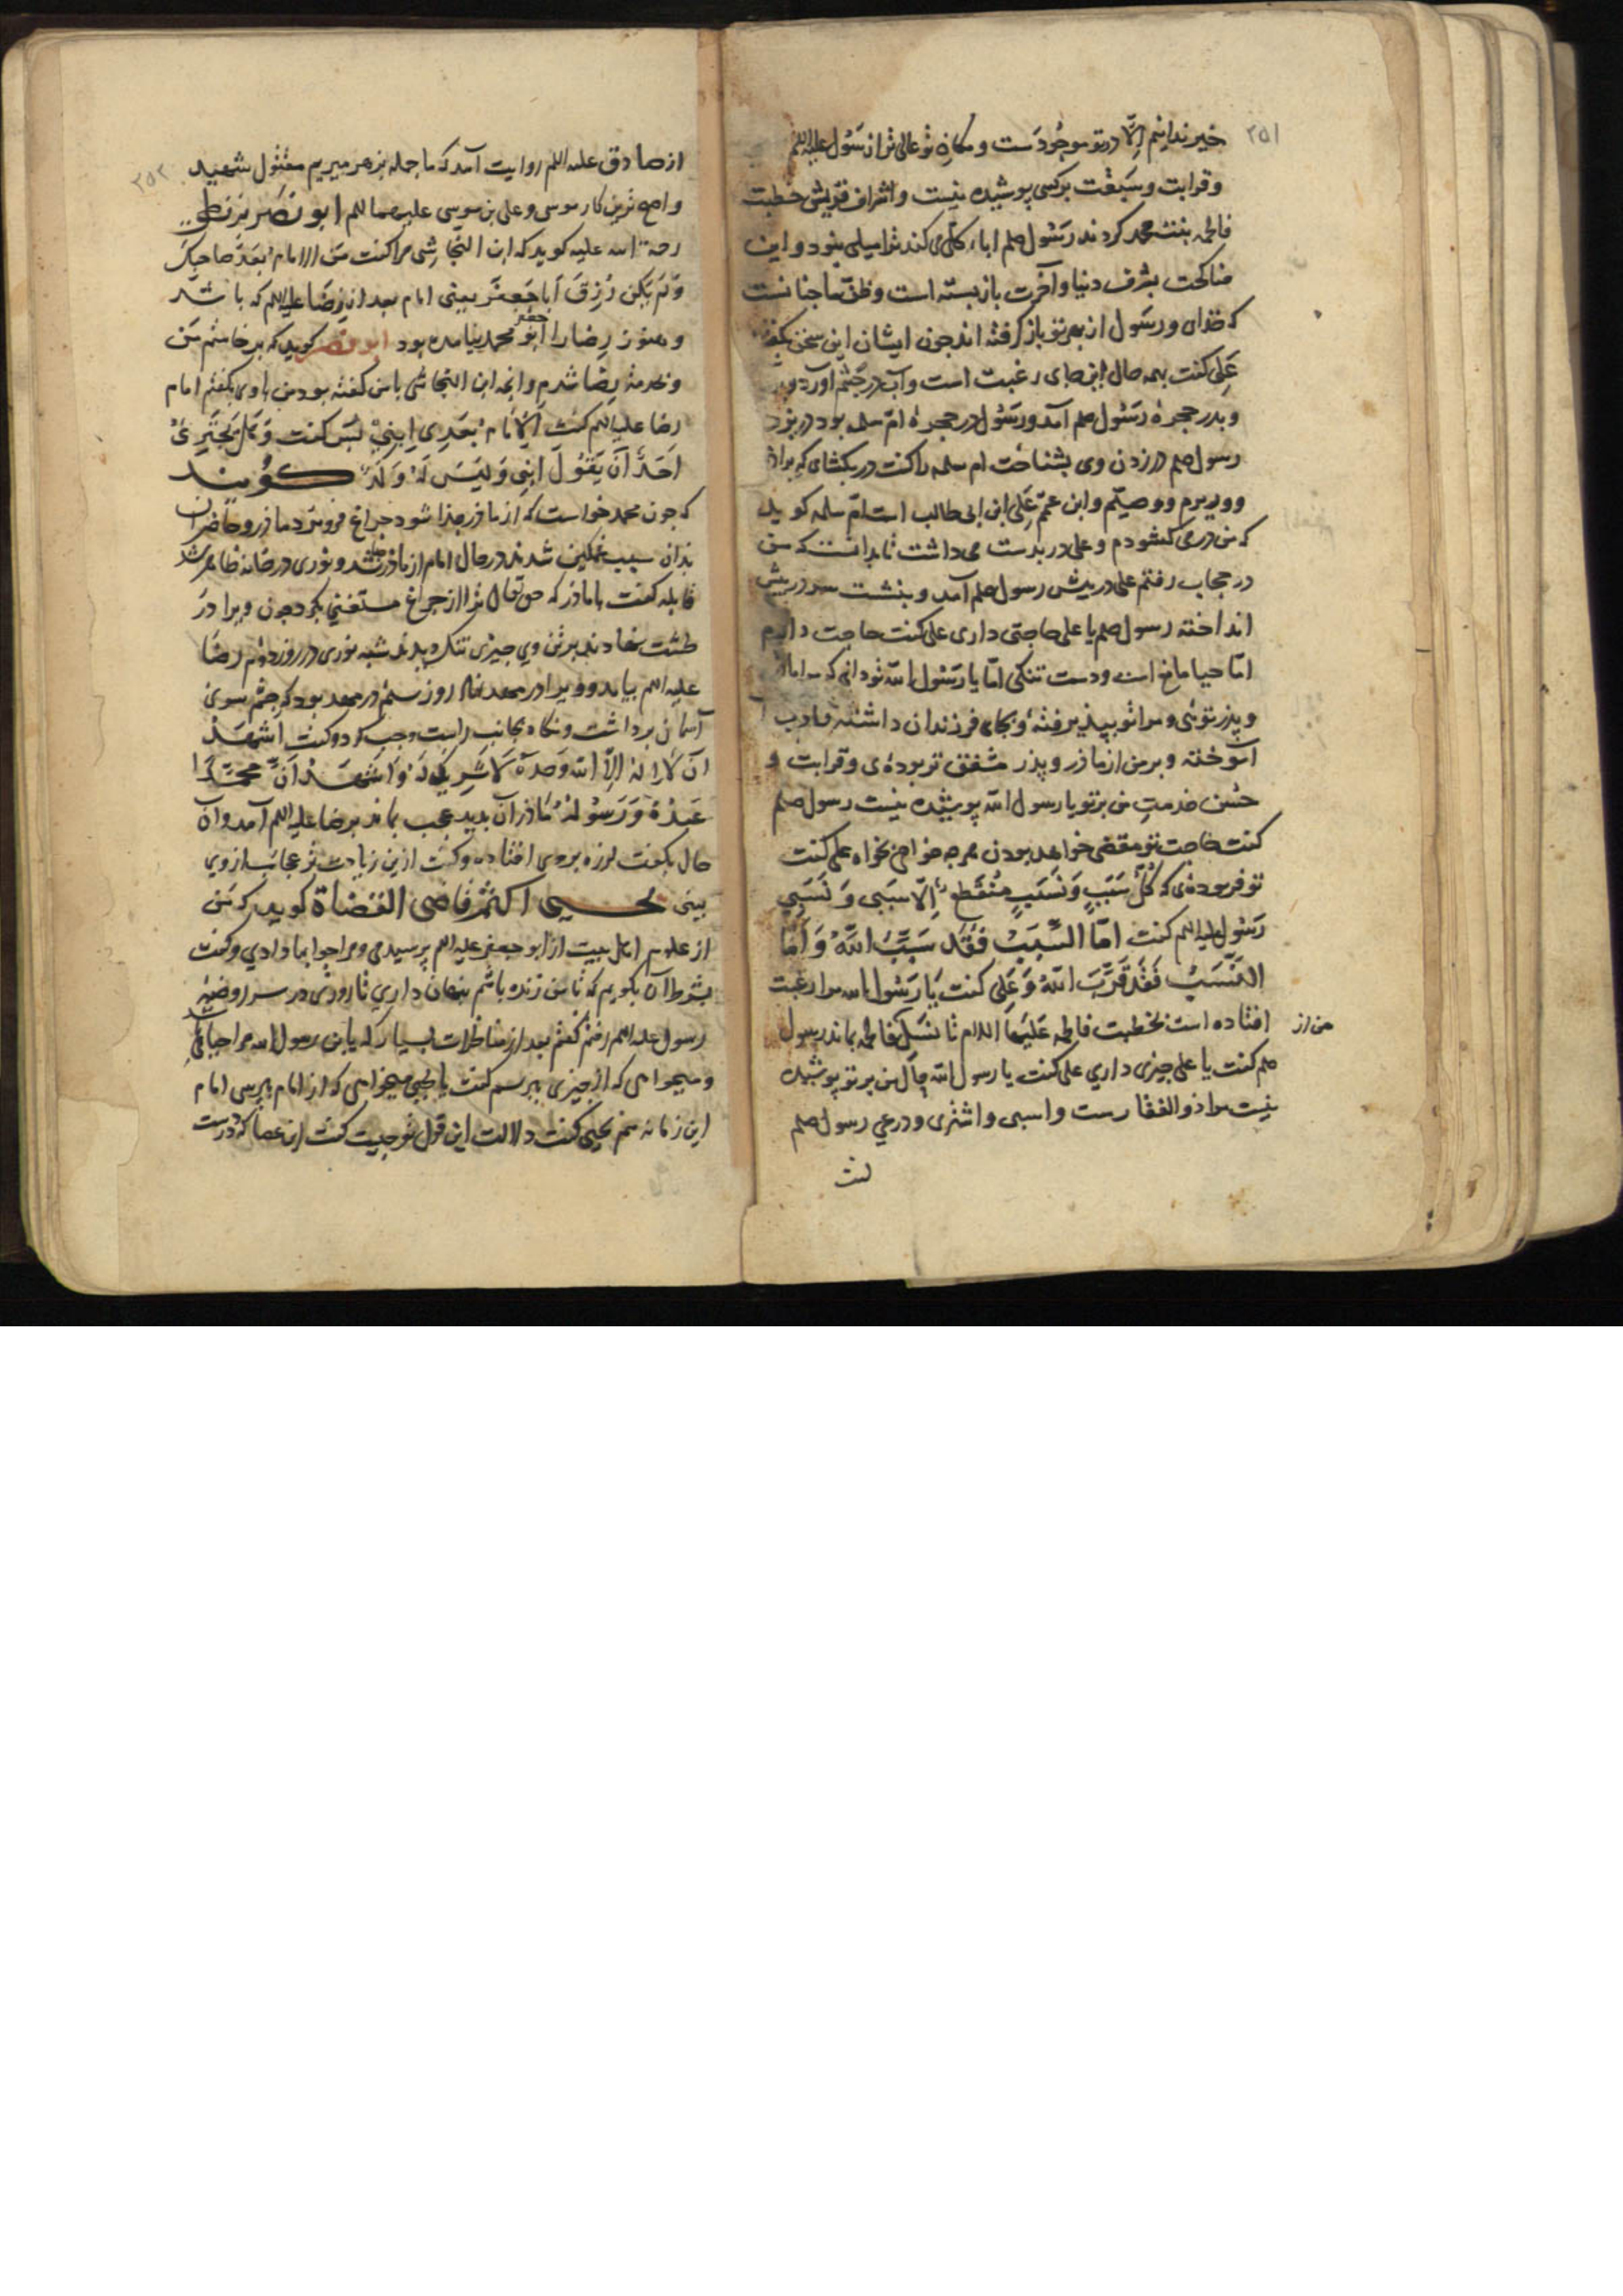 ۲۵۱
خیر ندانیم اِلّا در تو موجُودَست و مکان تو عالی تر از رَسُول علیه اللم
و قرابت و سَبقت بر کسی پوشیده نیست و اشراف قریش خطبت
فاطمه بنت محمد کردند رَسُول صلم اباء کلّی می کند ترا میلی بنود و این
مناکحت بشرف دنیا و آخرت بازبسته است و ظنّ ما چنانست
که خدای و رسَول از بهر تو باز گرفته اند چون ایشان این سخن بگفتند
عَلِی کفت بهمه حال این جای رغبت است و آب در چَشم آورد و
و بدر حجرهٔ رَسُول صلم آمد و رَسُول در حجرهٔ امّ سلمه بود در بزد
رسول صلم در زدن وی بشناخت ام سلمه را کفت در بکشای که برادر
و وزیرم و وصیّم و ابن عمّم عَلِی ابن ابی طالب است امّ سلمه کوید
که من در می کشودم و علی در بدست می داشت تا بدانست که من
در حجاب رفتم علی در پیش رسول صلم آمد و بنشست سر در پیش
انداخته رسول صلم یا علی حاجتی داری علی کفت حاجت دارم
امّا حیا مانع است و دست تنکی امّا یا رَسُول الله تو دانی که مرا مادر
و پذر توئی و مرا تو بپذیرفتهٔ و بجای فرزندان داشتهٔ و ادب
آموخته و بر من از ماذر و پذر مشفق تر بودهٔ و قرابت و
حُسن خدمتِ من بر تو یا رسول الله پوشیده نیست رسول صلم
کفت حاجت تو مقضی خواهد بودن هر چه خواهی بخواه علی کفت
تو فرمودهٔ که کُلُّ سَبَبٍ وَ نَسَبٍ مُنقَطِعٌ اِلّا سَبَبی وَ نَسَبِی
رَسُول علیه اللم کفت امّا السَّبَبُ فَقَد سَبَّبُ اللّهُ وَ أَمَّا
النَّسَبُ فَقَد قَرَّبَ اللّهُ وَ عَلِی کفت یَا رَسُول الله مرا رغبت
افتاده است بخطبت فاطمه عَلیهَا اللام تا نسَل من از فاطمه بماند رسول
صلم کفت یا علی چیزی داری علی کفت یا رسول الله حال من بر تو پوشیده
نیست مرا ذوالفقارست و اسبی و اشتری و درعی رسول صلم
۲۵۲
از صادق علیه اللم روایت آمد که ما جمله بزهر میریم مقتول شهید
و اصح ترین کار موسی و علی بن موسی علیهما اللم ابو نصَر بزنطی
رحمة الله علیه کوید که ابن النجاشی مرا کفت مَن الامام بَعدَ صاحبک
وَ لَم یَکُن رُزِقَ اَبا جَعفَر یعنی امام بعد از رِضَا علیه اللم که باشد
و هنوز رِضا را ابو جعفر محمد نیامده بود ابو نصر کوید که برخاستم مَن
و بخدمت رِضا شدم و آنچه ابن النجاشی با من کفته بود من با وی بکفتم امام
رضا علیه اللم کفت اَلاِمَامُ بَعدِی اِبنِی بَس کفت وَ هَل یَجتَرِئُ
اَحَدٌ اَن یَقُولَ ابنِی وَ لَیسَ لَهُ وَلَدٌ کُویند
که چون محمد خواست که از ماذر جذا شود چراغ فرو مرد ماذر و حاضران
بذان سبب غمکین شدند در حال امام از ماذر جدا شد و نوری در خانه ظاهر شد
قابله کفت با ماذر که حق تعالی ترا از چراغ مستغنی بکرد چون ویرا در
طشت نهادند بر تن وی چیزی تنک دیدند شبه نوری در روز دوم رضا
علیه اللم بیامد و ویرا در مهد نهاد روز سیّم در مهد بود که چشم سوی
آسمان برداشت و نکاه بجانب راست و چپ کرد و کفت اَشهَدُ
ان لَا اِلهَ اِلاّ الله وَحدَهُ لَا شَرِیکَ لَهُ وَ اَشهَدُ اَنَّ مُحَمَّدًا
عَبدُهُ وَ رَسُولُهُ مَاذر آن بدید عجب بماند برضا علیه اللم آمد و آن
حال بکفت لرزه بر وی افتاده و کفت ازین زیادت تر عجائب از وی
بینی یحیی اکثم قاضی القضاة کوید که مَن
از علوم اهل بیت از ابو جعفر علیه اللم پرسیدمی و مرا جوابها دادی و کفت
بشرط آن بکویم که تا من زنده باشم پنهان داری تا روزی در سر روضهٔ
رسول علیه اللم رفتم کفتم بعد از مناظرات بسیار که یا ابن رسول الله مرا حیا
و میخواهی که از چیزی بپرسم کفت یا یحیی میخواهی که از امام بپرسی امام
این زمانه منم یحیی کفت دلالت این قول تو چیست کفت این عصا که در دست